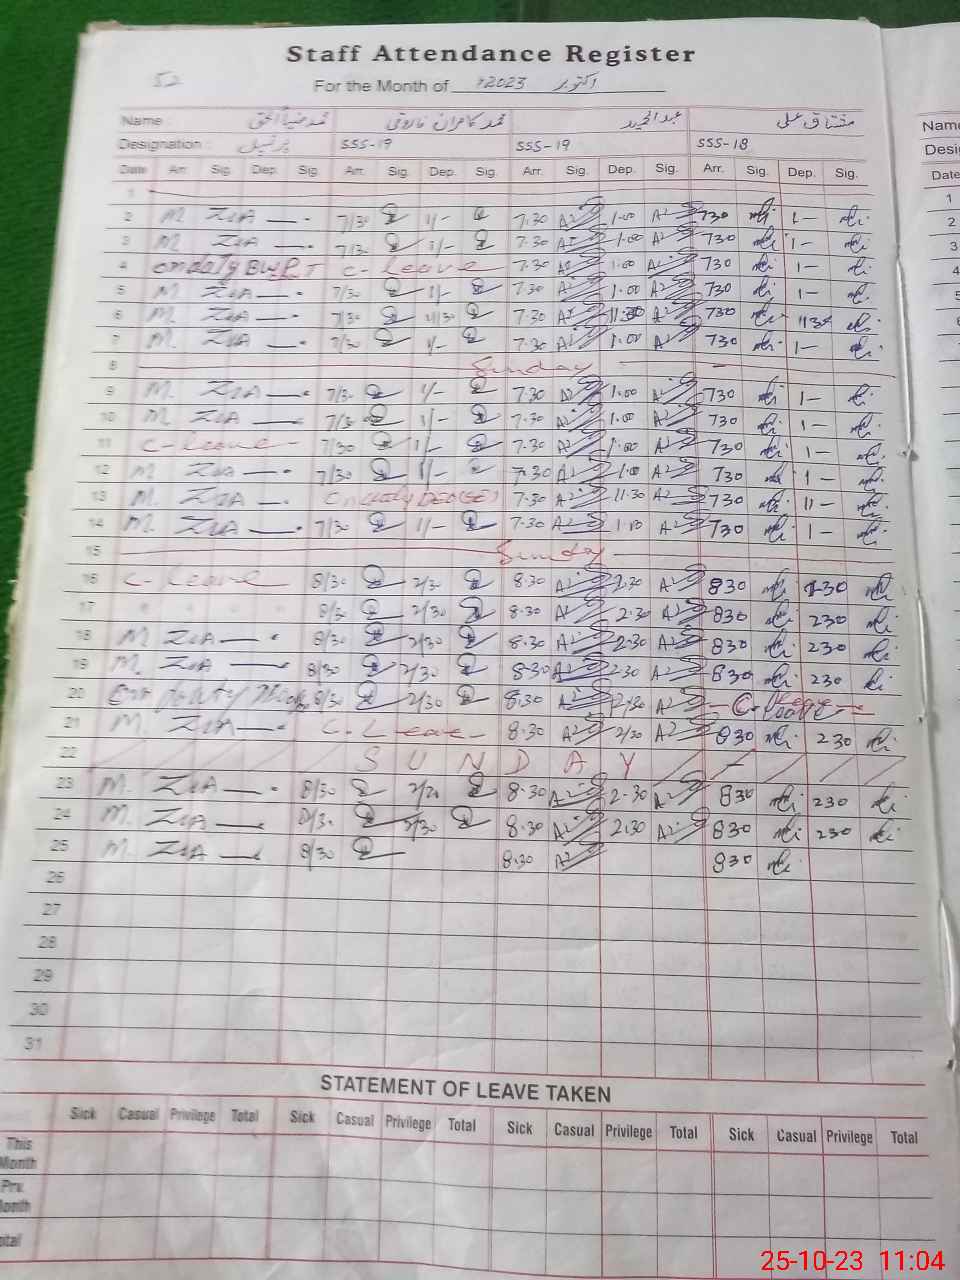 Staff Attendance Register
52 For the Month of اکتوبر 2023ء
Name : محمد ضیاءالحق محمد کامران فاروقی عبدالحمید مشتاق علی Name
Designation : پرنسپل SSS-19 SSS-19 SSS-18
Date Arr. Sig. Dep. Sig. Arr. Sig. Dep. Sig. Arr. Sig. Dep. Sig. Arr. Sig. Dep. Sig. Date
1
2 M. ZIA 7/30 1/- 7.30 1.00 730 1-
3 M. ZIA 7/30 1/- 7.30 1.00 730 1-
4 on duty BWPT C-Leave 7.30 1.00 730 1-
5 M. ZIA 7/30 1/- 7.30 1.00 730 1-
6 M. ZIA 7/30 7.30 11.30 730 1130
7 M. ZIA 7/30 1/- 7.30 1.00 730 1-
8 Sunday
9 M. ZIA 7/30 1/- 7.30 1.00 730 1-
10 M. ZIA 7/30 1/- 7.30 1.00 730 1-
11 C-leave 7/30 1/- 7.30 1.00 730 1-
12 M. ZIA 7/30 1/- 7.30 1.00 730 1-
13 M. ZIA On duty DEO(SE) 7.30 11.30 730 11-
14 M. ZIA 7/30 1/- 7.30 1.00 730 1-
15 Sunday
16 C-leave 8/30 2/30 8.30 2.30 830 230
17 8/30 2/30 8.30 2.30 830 230
18 M. ZIA 8/30 2/30 8.30 2.30 830 230
19 M. ZIA 8/30 2/30 8.30 2.30 830 230
20 On Duty 8/30 2/30 8.30 2/30 C-leave
21 M. ZIA C.Leave 8.30 2/30 830 230
22 SUNDAY
23 M. ZIA 8/30 2/30 8.30 2.30 830 230
24 M. ZIA 8/30 2/30 8.30 2.30 830 230
25 M. ZIA 8/30 8.30 830
26
27
28
29
30
31
STATEMENT OF LEAVE TAKEN
Sick Casual Privilege Total Sick Casual Privilege Total Sick Casual Privilege Total Sick Casual Privilege Total
This Month
Prv. Month
Total
25-10-23 11:04